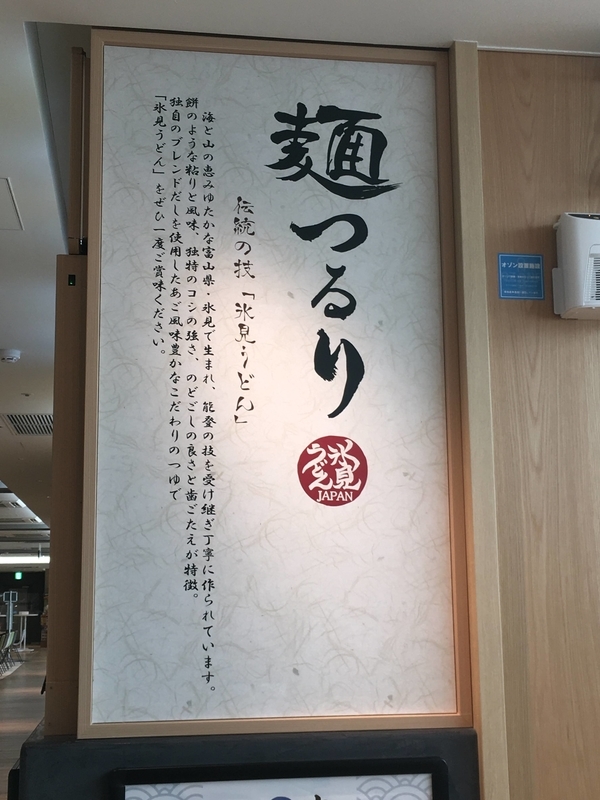 麺つるり
氷見
うどん
JAPAN
伝統の技「氷見うどん」
海と山の恵みゆたかな富山県・氷見で生まれ、能登の技を受け継ぎ丁寧に作られています。
餅のような粘りと風味、独特のコシの強さ、のどごしの良さと歯ごたえが特徴。
独自のブレンドだしを使用したあご風味豊かなこだわりのつゆで
「氷見うどん」をぜひ一度ご賞味ください。